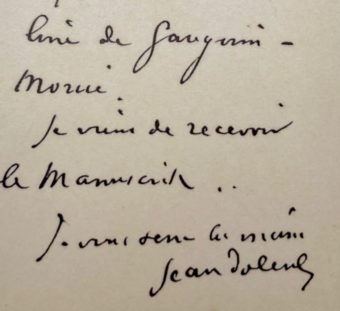 livre de Gauguin -
Morice.
Je viens de recevoir
le Manuscrit ..
Je vous serre la main
Jean Dolent